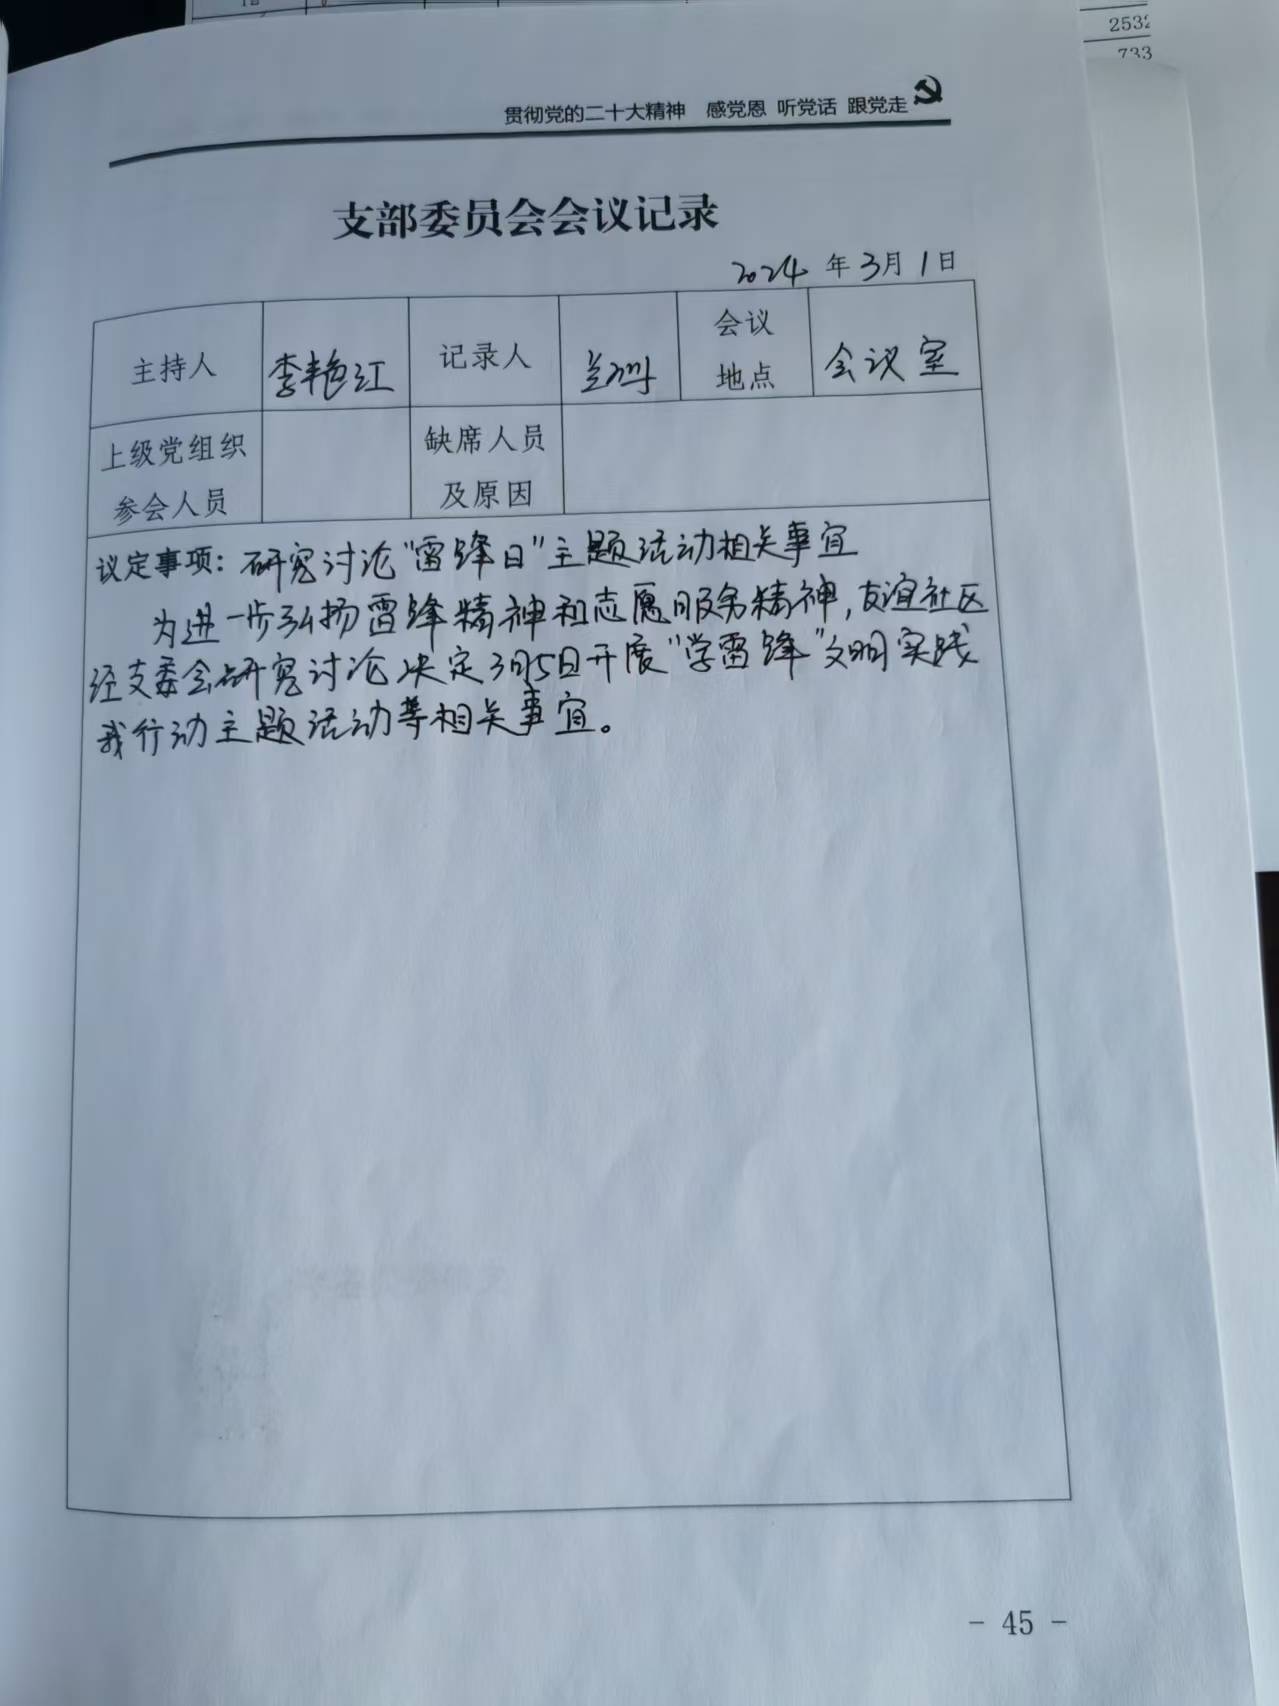 2532
733
贯彻党的二十大精神 感党恩 听党话 跟党走
支部委员会会议记录
2024 年 3月 1日
主持人 李艳江 记录人 会议地点 会议室
上级党组织参会人员 缺席人员及原因
议定事项：研究讨论“雷锋日”主题活动相关事宜
为进一步弘扬雷锋精神和志愿服务精神，友谊社区
经支委会研究讨论决定3月5日开展“学雷锋”文明实践
我行动主题活动等相关事宜。
- 45 -